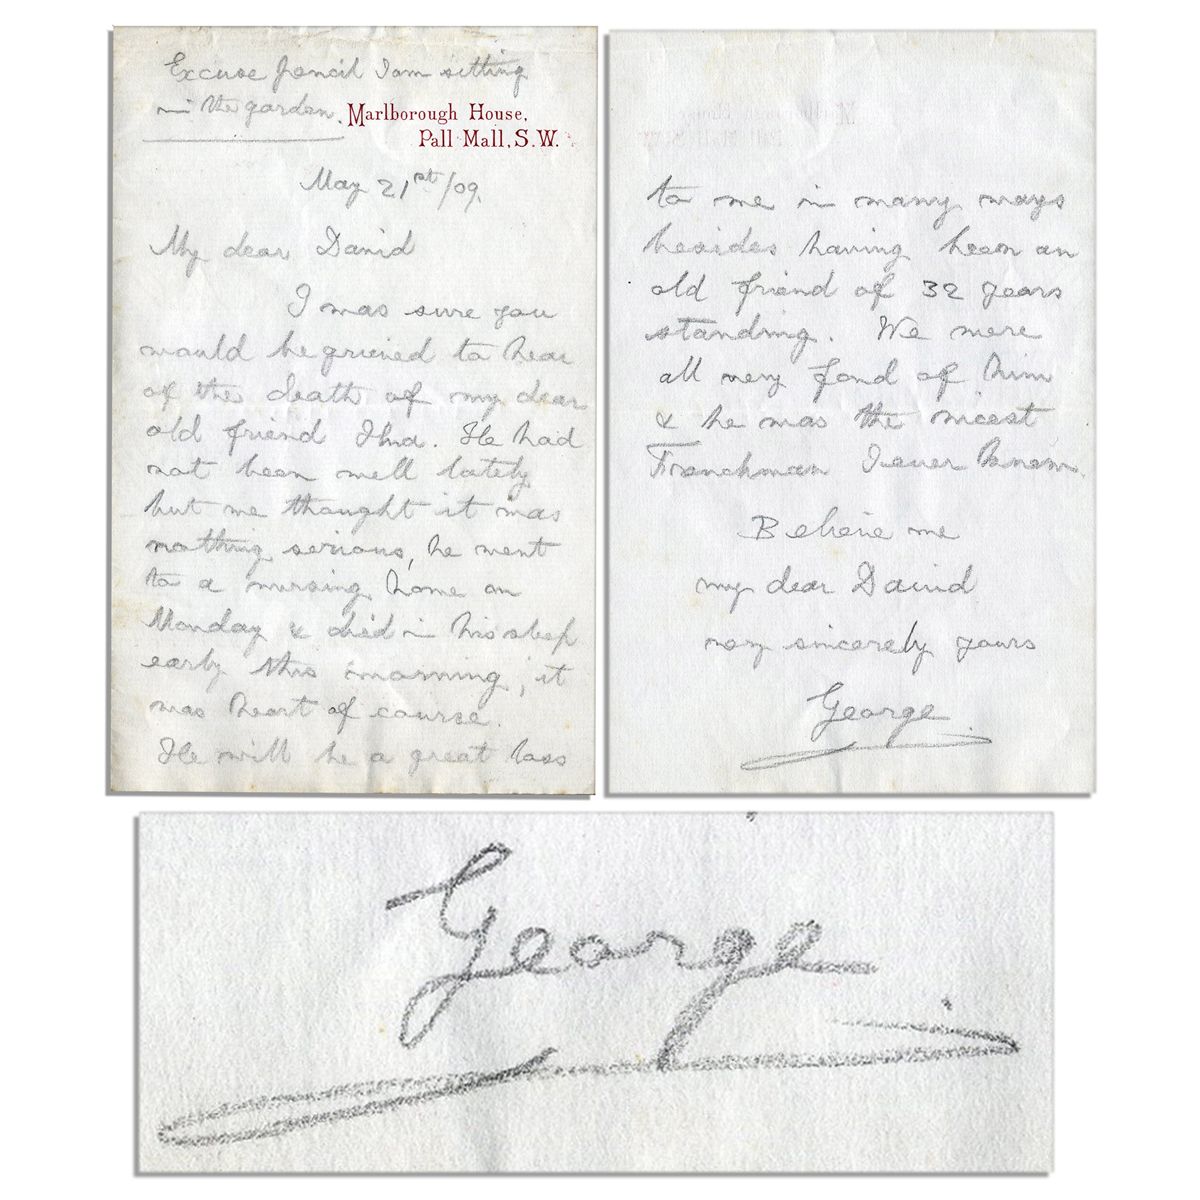 Excuse pencil I am sitting
in the garden.
Marlborough House,
Pall Mall, S.W.
May 21st/09.
My dear David
I was sure you
would be grieved to hear
of the death of my dear
old friend Hua. He had
not been well lately
but we thought it was
nothing serious, he went
to a nursing home on
Monday & died in his sleep
early this morning, it
was heart of course.
He will be a great loss
to me in many ways
besides having been an
old friend of 32 years
standing. We were
all very fond of him
& he was the nicest
Frenchman I ever knew.
Believe me
my dear David
very sincerely yours
George
George